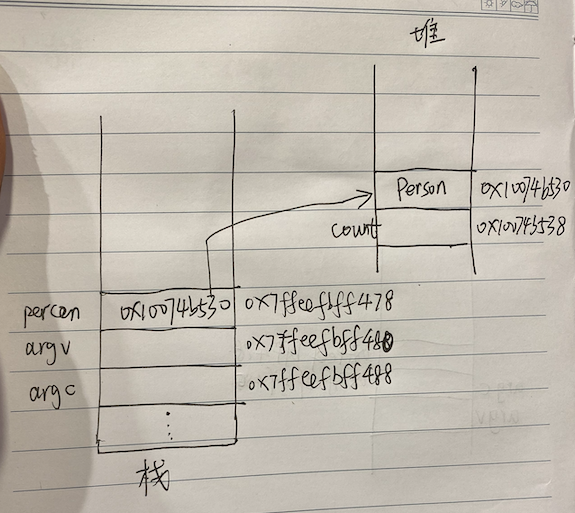 堆
Person 0x10074b530
count 0x10074b538
percen 0x10074b530 0x7ffeefbff478
argv 0x7ffeefbff480
argc 0x7ffeefbff488
栈